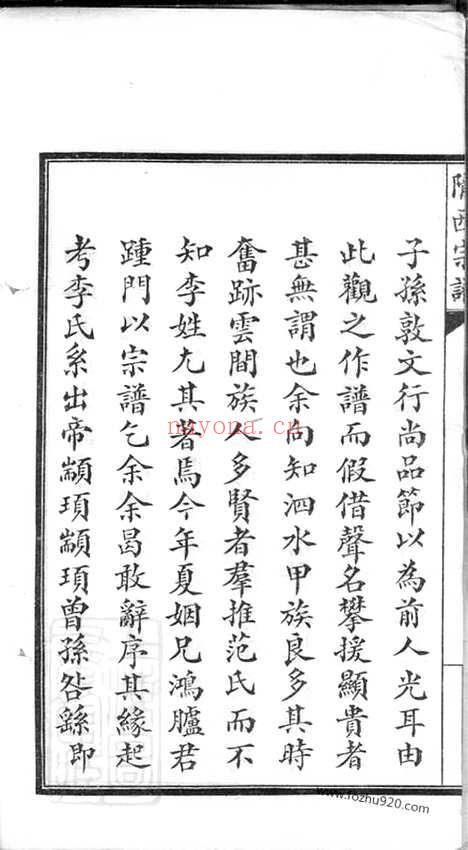 隴西宗譜
子孫敦文行尚品節以為前人光耳由
此觀之作譜而假借聲名攀援顯貴者
甚無謂也余向知泗水甲族良多其時
奮跡雲間族人多賢者羣推范氏而不
知李姓尤其著焉今年夏姻兄鴻臚君
踵門以宗譜乞余余曷敢辭序其緣起
考李氏系出帝顓頊顓頊曾孫咎繇即
nayona.cn
www.fozhu920.com